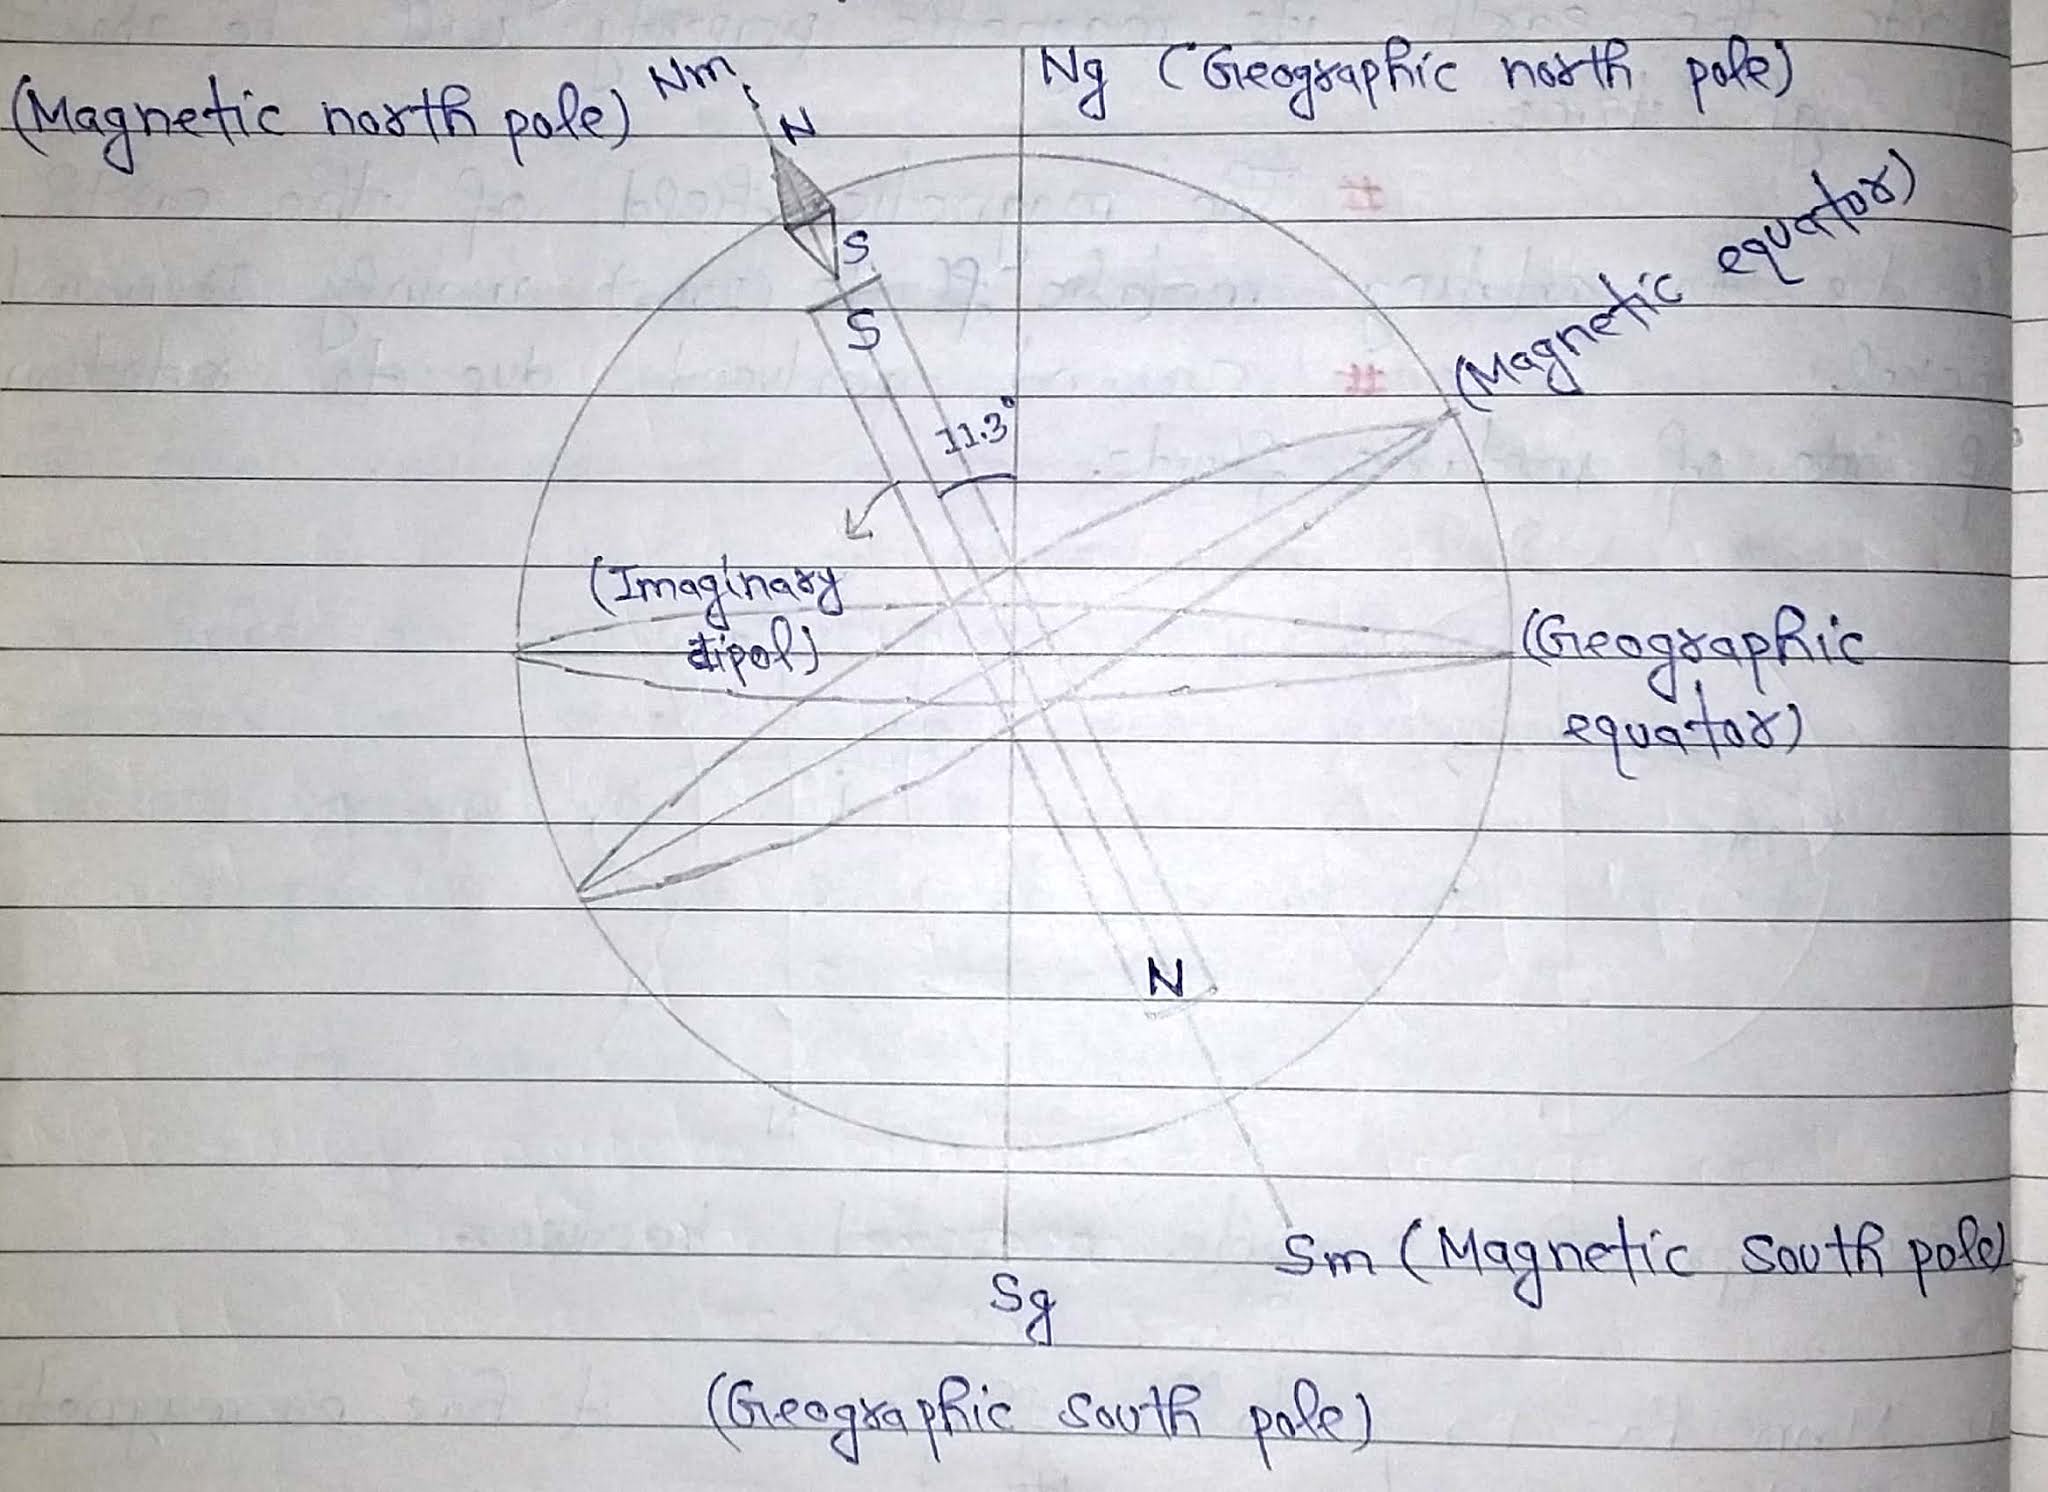 Nm
(Magnetic north pole)
Ng (Geographic north pole)
N
S
S
(Magnetic equator)
11.3°
(Imaginary
dipol)
(Geographic
equator)
N
Sm (Magnetic South pole)
Sg
(Geographic South pole)